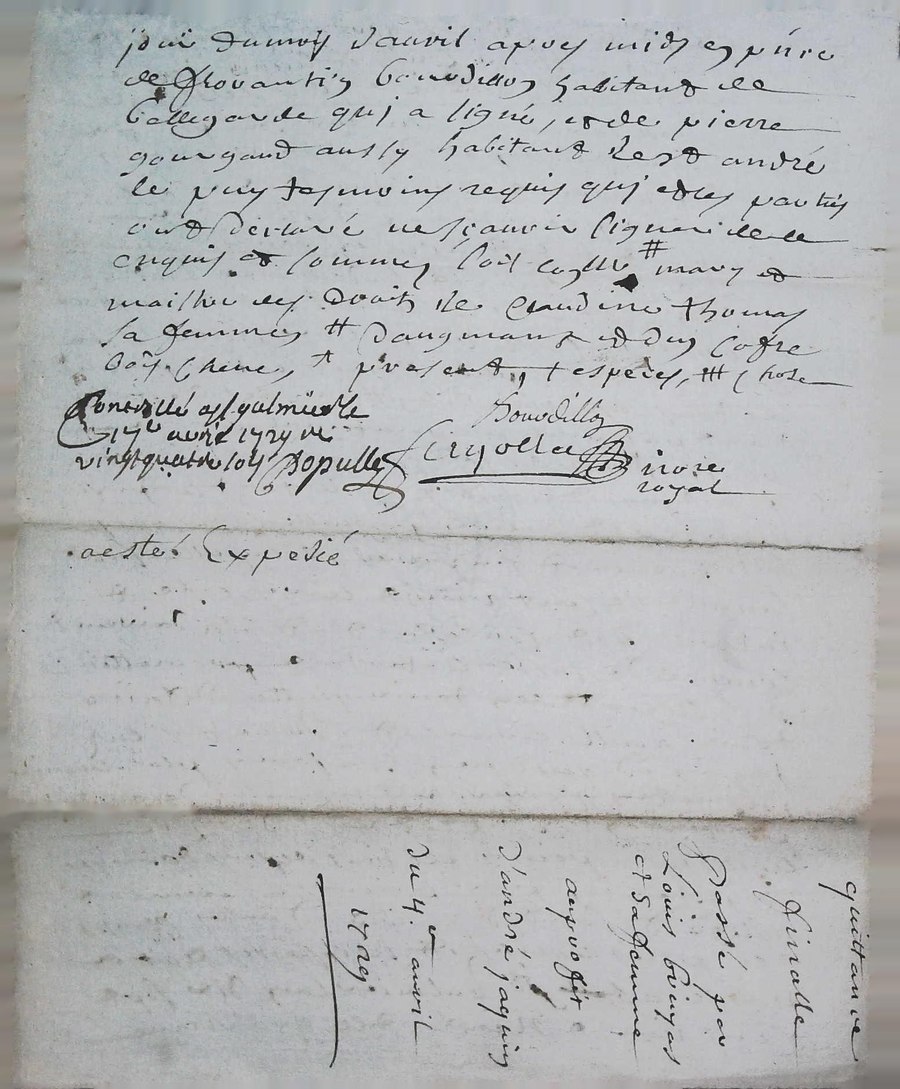 jour du mois d'avril apres midy en pñce
de Florantin Bourdillon habitant de
bellegarde qui a signé, et de pierre
gourgaud aussy habitant de st andré
le puy tesmoins requis qui et les parties
ont declaré ne sçavoir signer de ce
enquis et sommes soit comme # mary et
maistre des droits de Claudine thomas
sa femme, # daugmant et dun cofre
bois chene, + present, + especies, ### chose
Bourdillon
Controllé a st galmier le
17e avril 1729 Re
vingt quatre sols Populle
nore
royal
a esté Expedié
quittance
finalle
Passé par
Louis
et Sa femme
au profit
d'andré jaquin
du 4e avril
1729